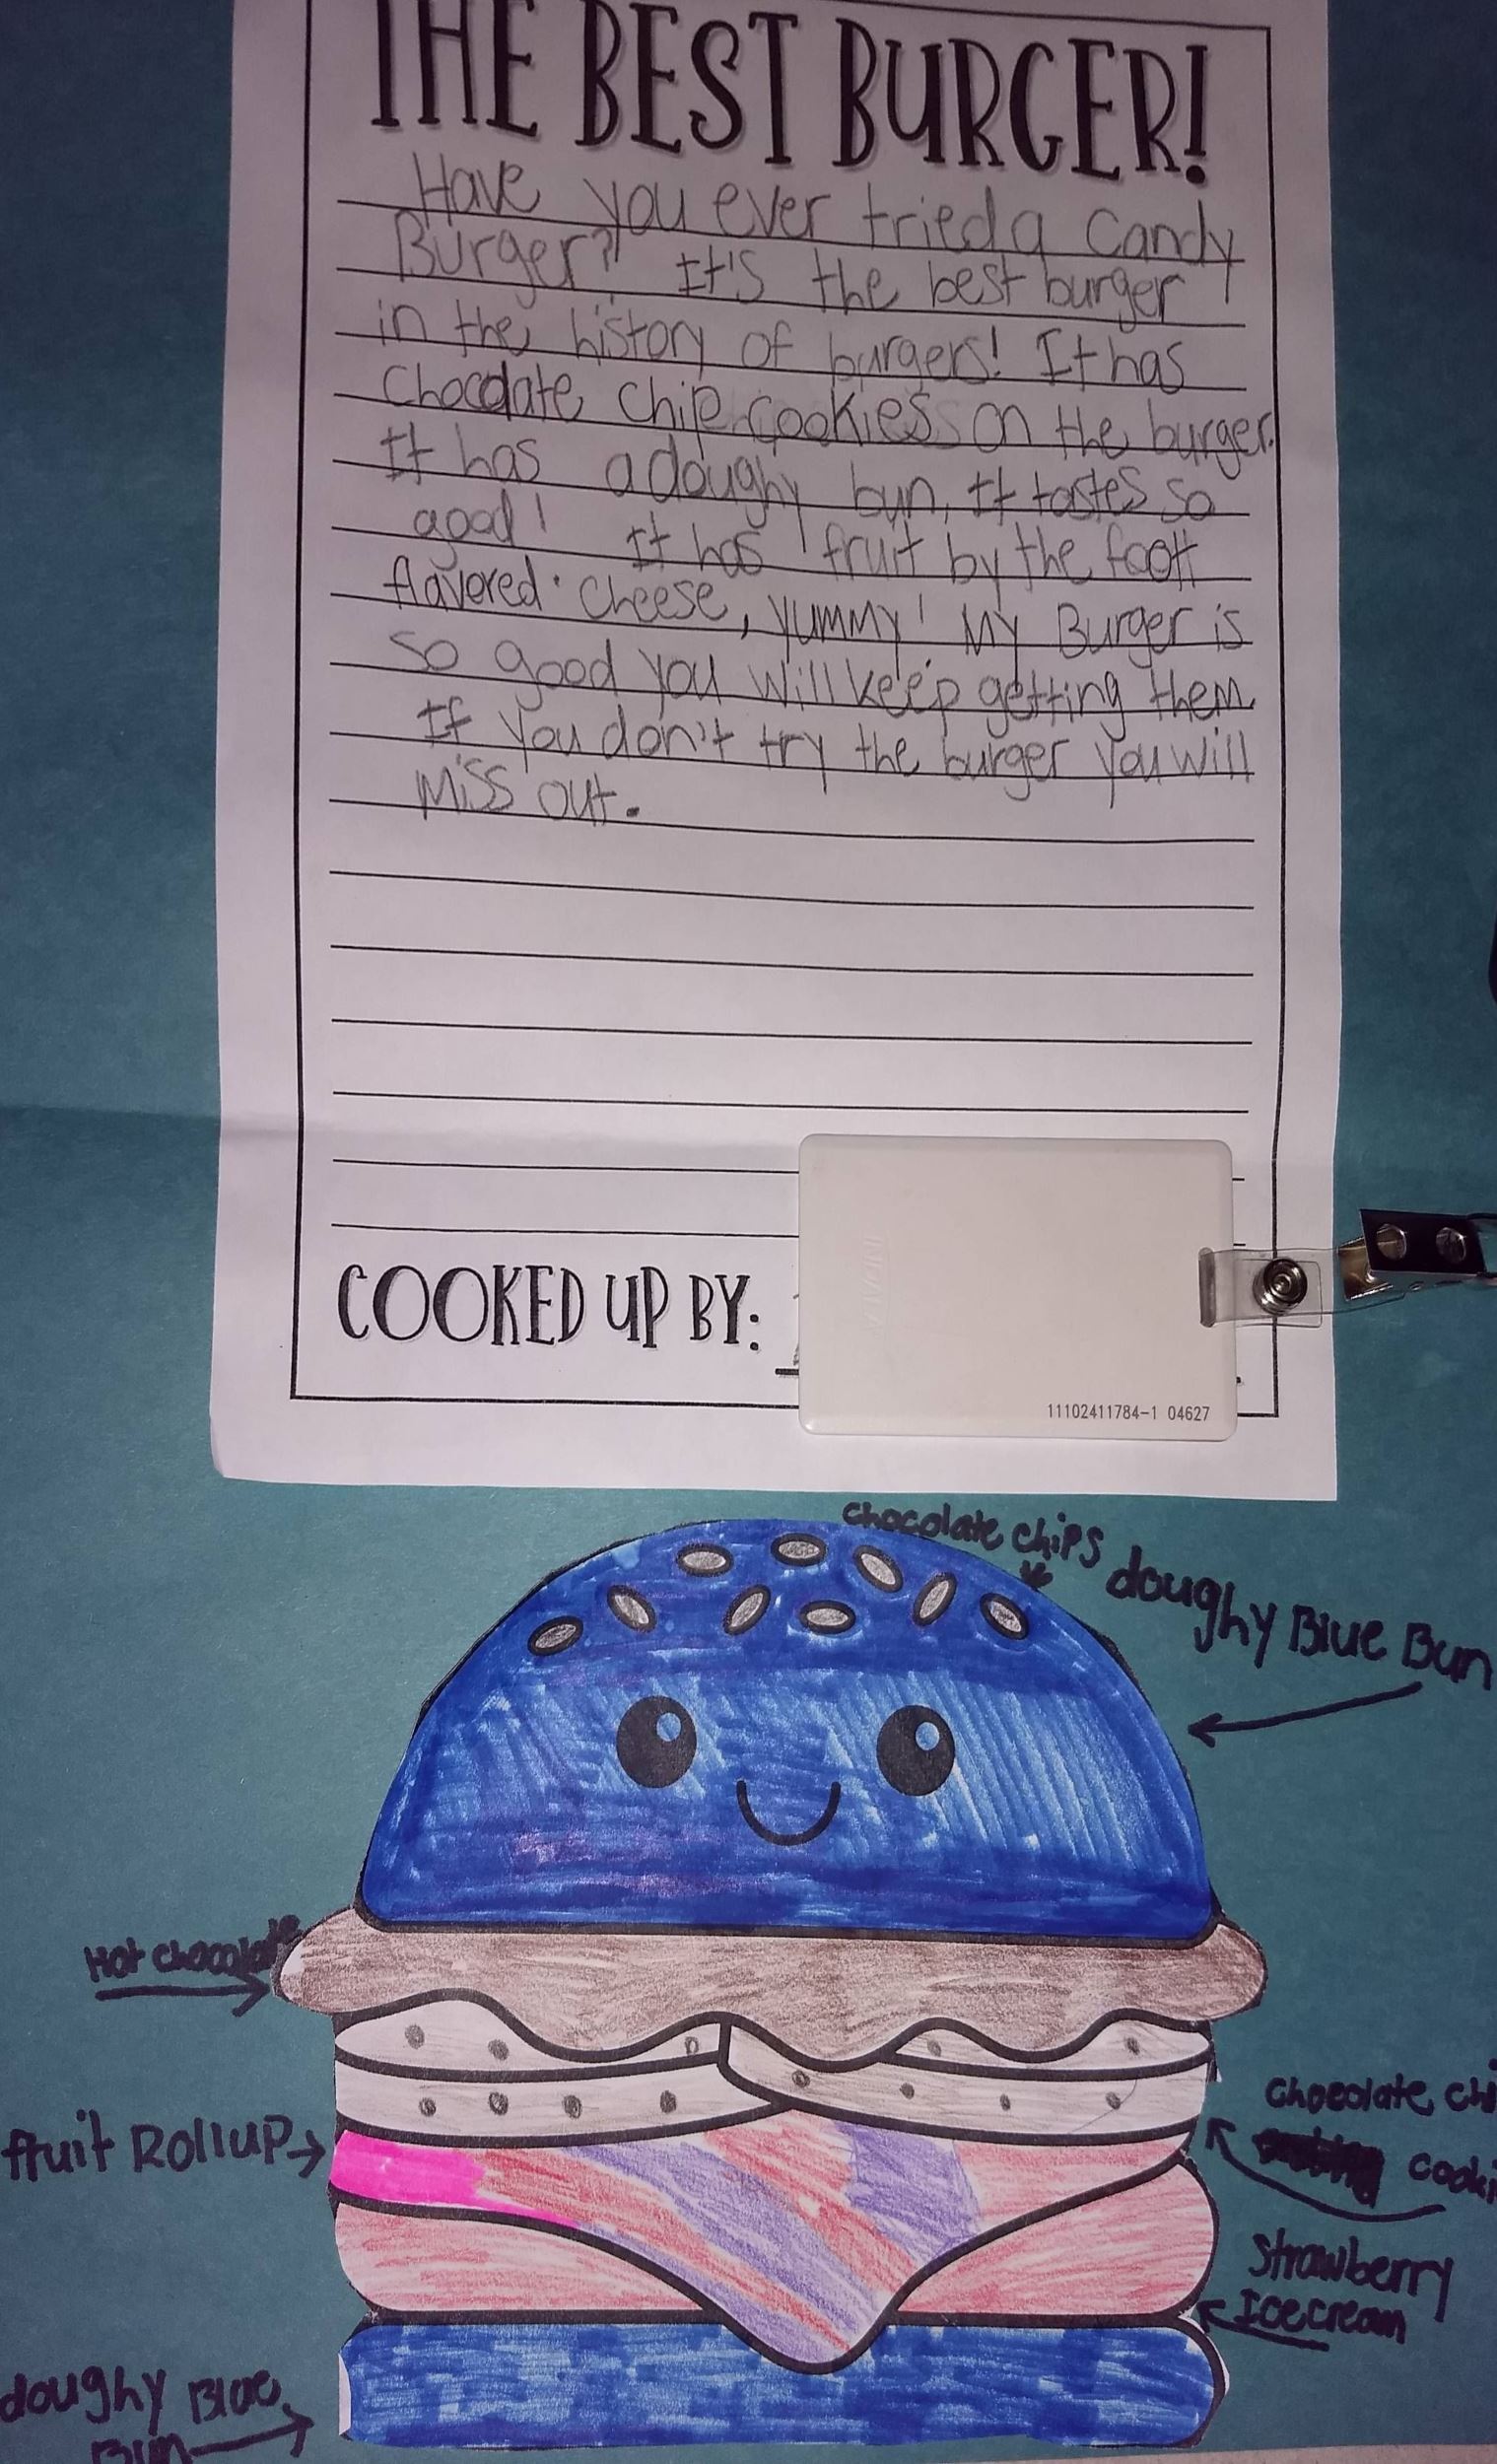 THE BEST BURGER!
Have you ever tried a Candy
Burger? It's the best burger
in the history of burgers! It has
Chocolate chip cookies on the burger.
It has a doughy bun, it tastes so
good! It has fruit by the foot
flavored cheese, yummy! My Burger is
so good you will keep getting them
If you don't try the burger you will
miss out.
COOKED UP BY:
11102411784-1 04627
chocolate chips
doughy Blue Bun
Hot chocolate
chocolate chi
cooki
fruit Rollup
strawberry
Icecream
doughy Blue
Bun